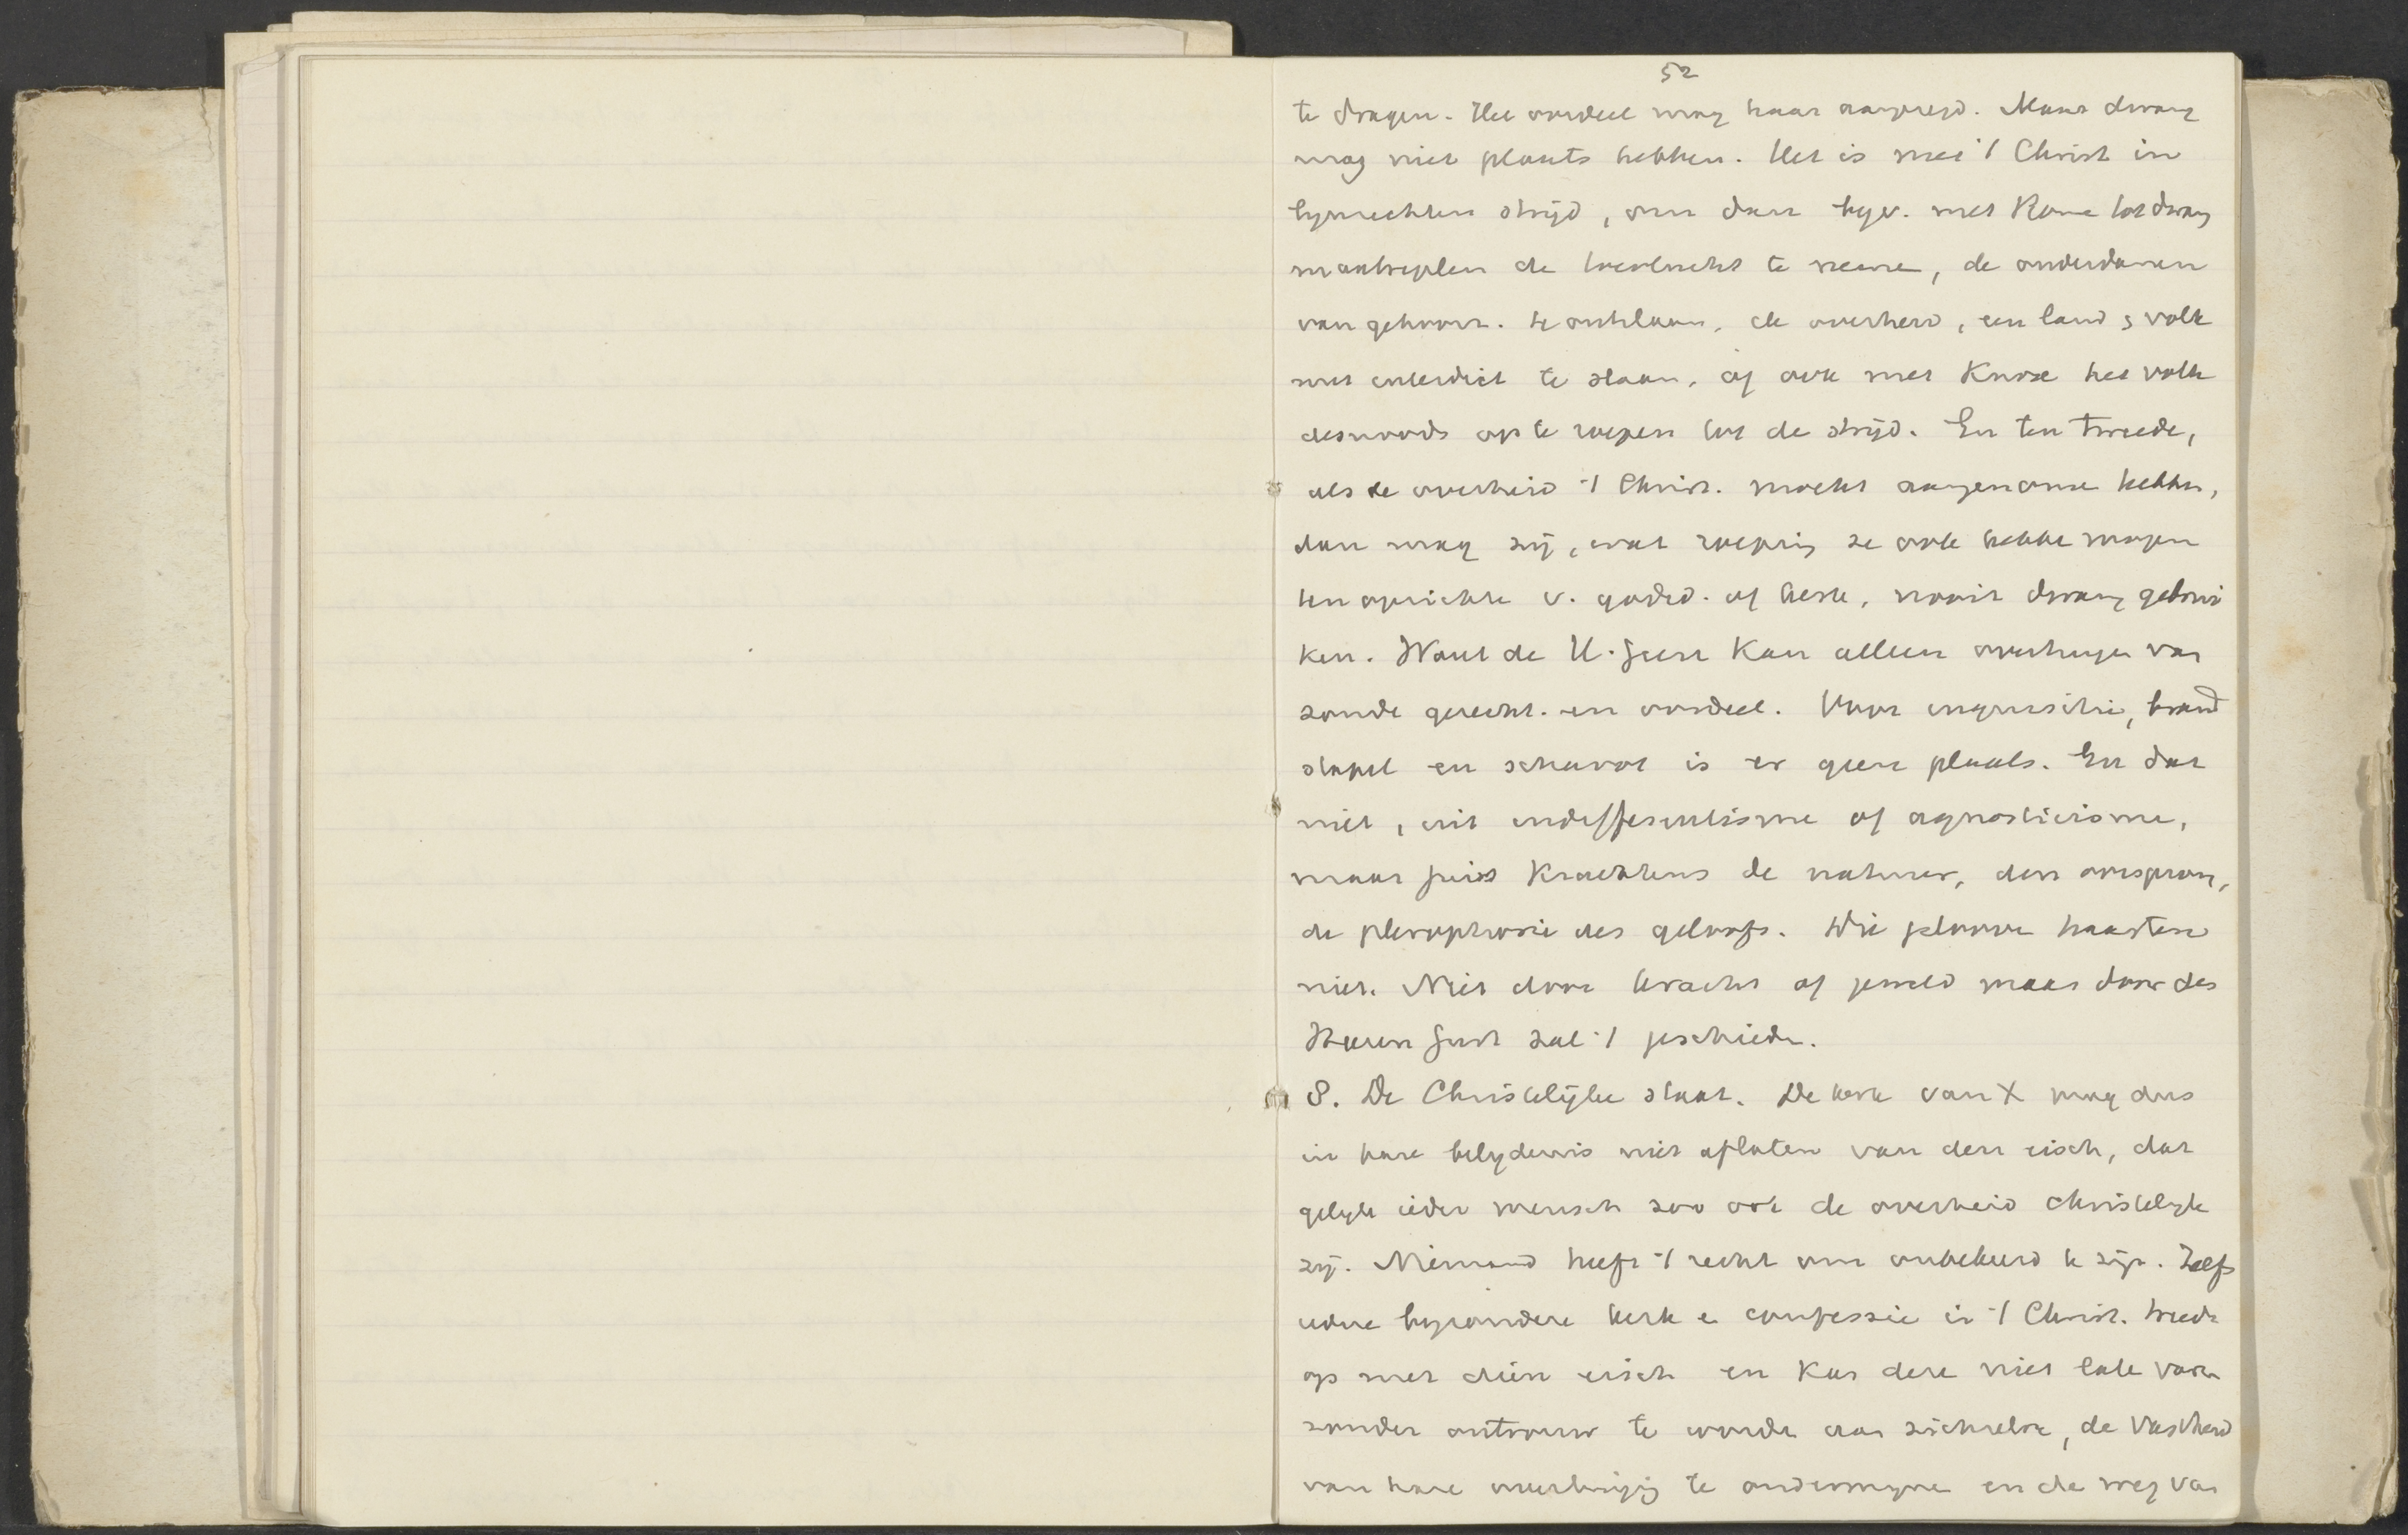 52
te dragen. Het oordeel mag haar aangezegd. Maar dwang
mag niet plaats hebben. Het is met 't Christ. in
lijnrechten strijd, om dan bijv. met Rome tot dwang
maatregelen de toevlucht te neme, de onderdanen
van gehoorz. te ontslaan, de overheid, een land & volk
met interdict te slaan, of ook met Knox het volk
desnoods op te roepen tot de strijd. En ten tweede,
als de overheid 't Christ. mocht aangenome hebbe,
dan mag zij, wat roeping ze ook hebbe moge
ten opzichte v. godsd. of kerk, nooit dwang gebrui
ken. Want de H. Geest kan alleen overtuige van
zonde gerecht. en oordeel. Voor inquisitie, brand
stapel en schavot is er geen plaats. En dat
niet, uit indifferentisme of agnosticisme,
maar juist krachtens de natuur, den oorsprong,
de plerophorie des geloofs. Die geloove haasten
niet. Niet door kracht of geweld maar door des
Heeren Geest zal 't geschiede.
8. De Christelijke staat. De kerk van X mag dus
in hare belydenis niet aflaten van den eisch, dat
gelyk ieder mensch zoo ook de overheid christelyk
zij. Niemand heeft 't recht om onbekeerd te zijn. Zelfs
iedere byzondere kerk e confessie in 't Christ. treedt
op met dien eisch en kan deze niet late vare
zonder ontrouw te worde aan zichzelve, de vastheid
van hare overtuiging te ondermyne en de weg van